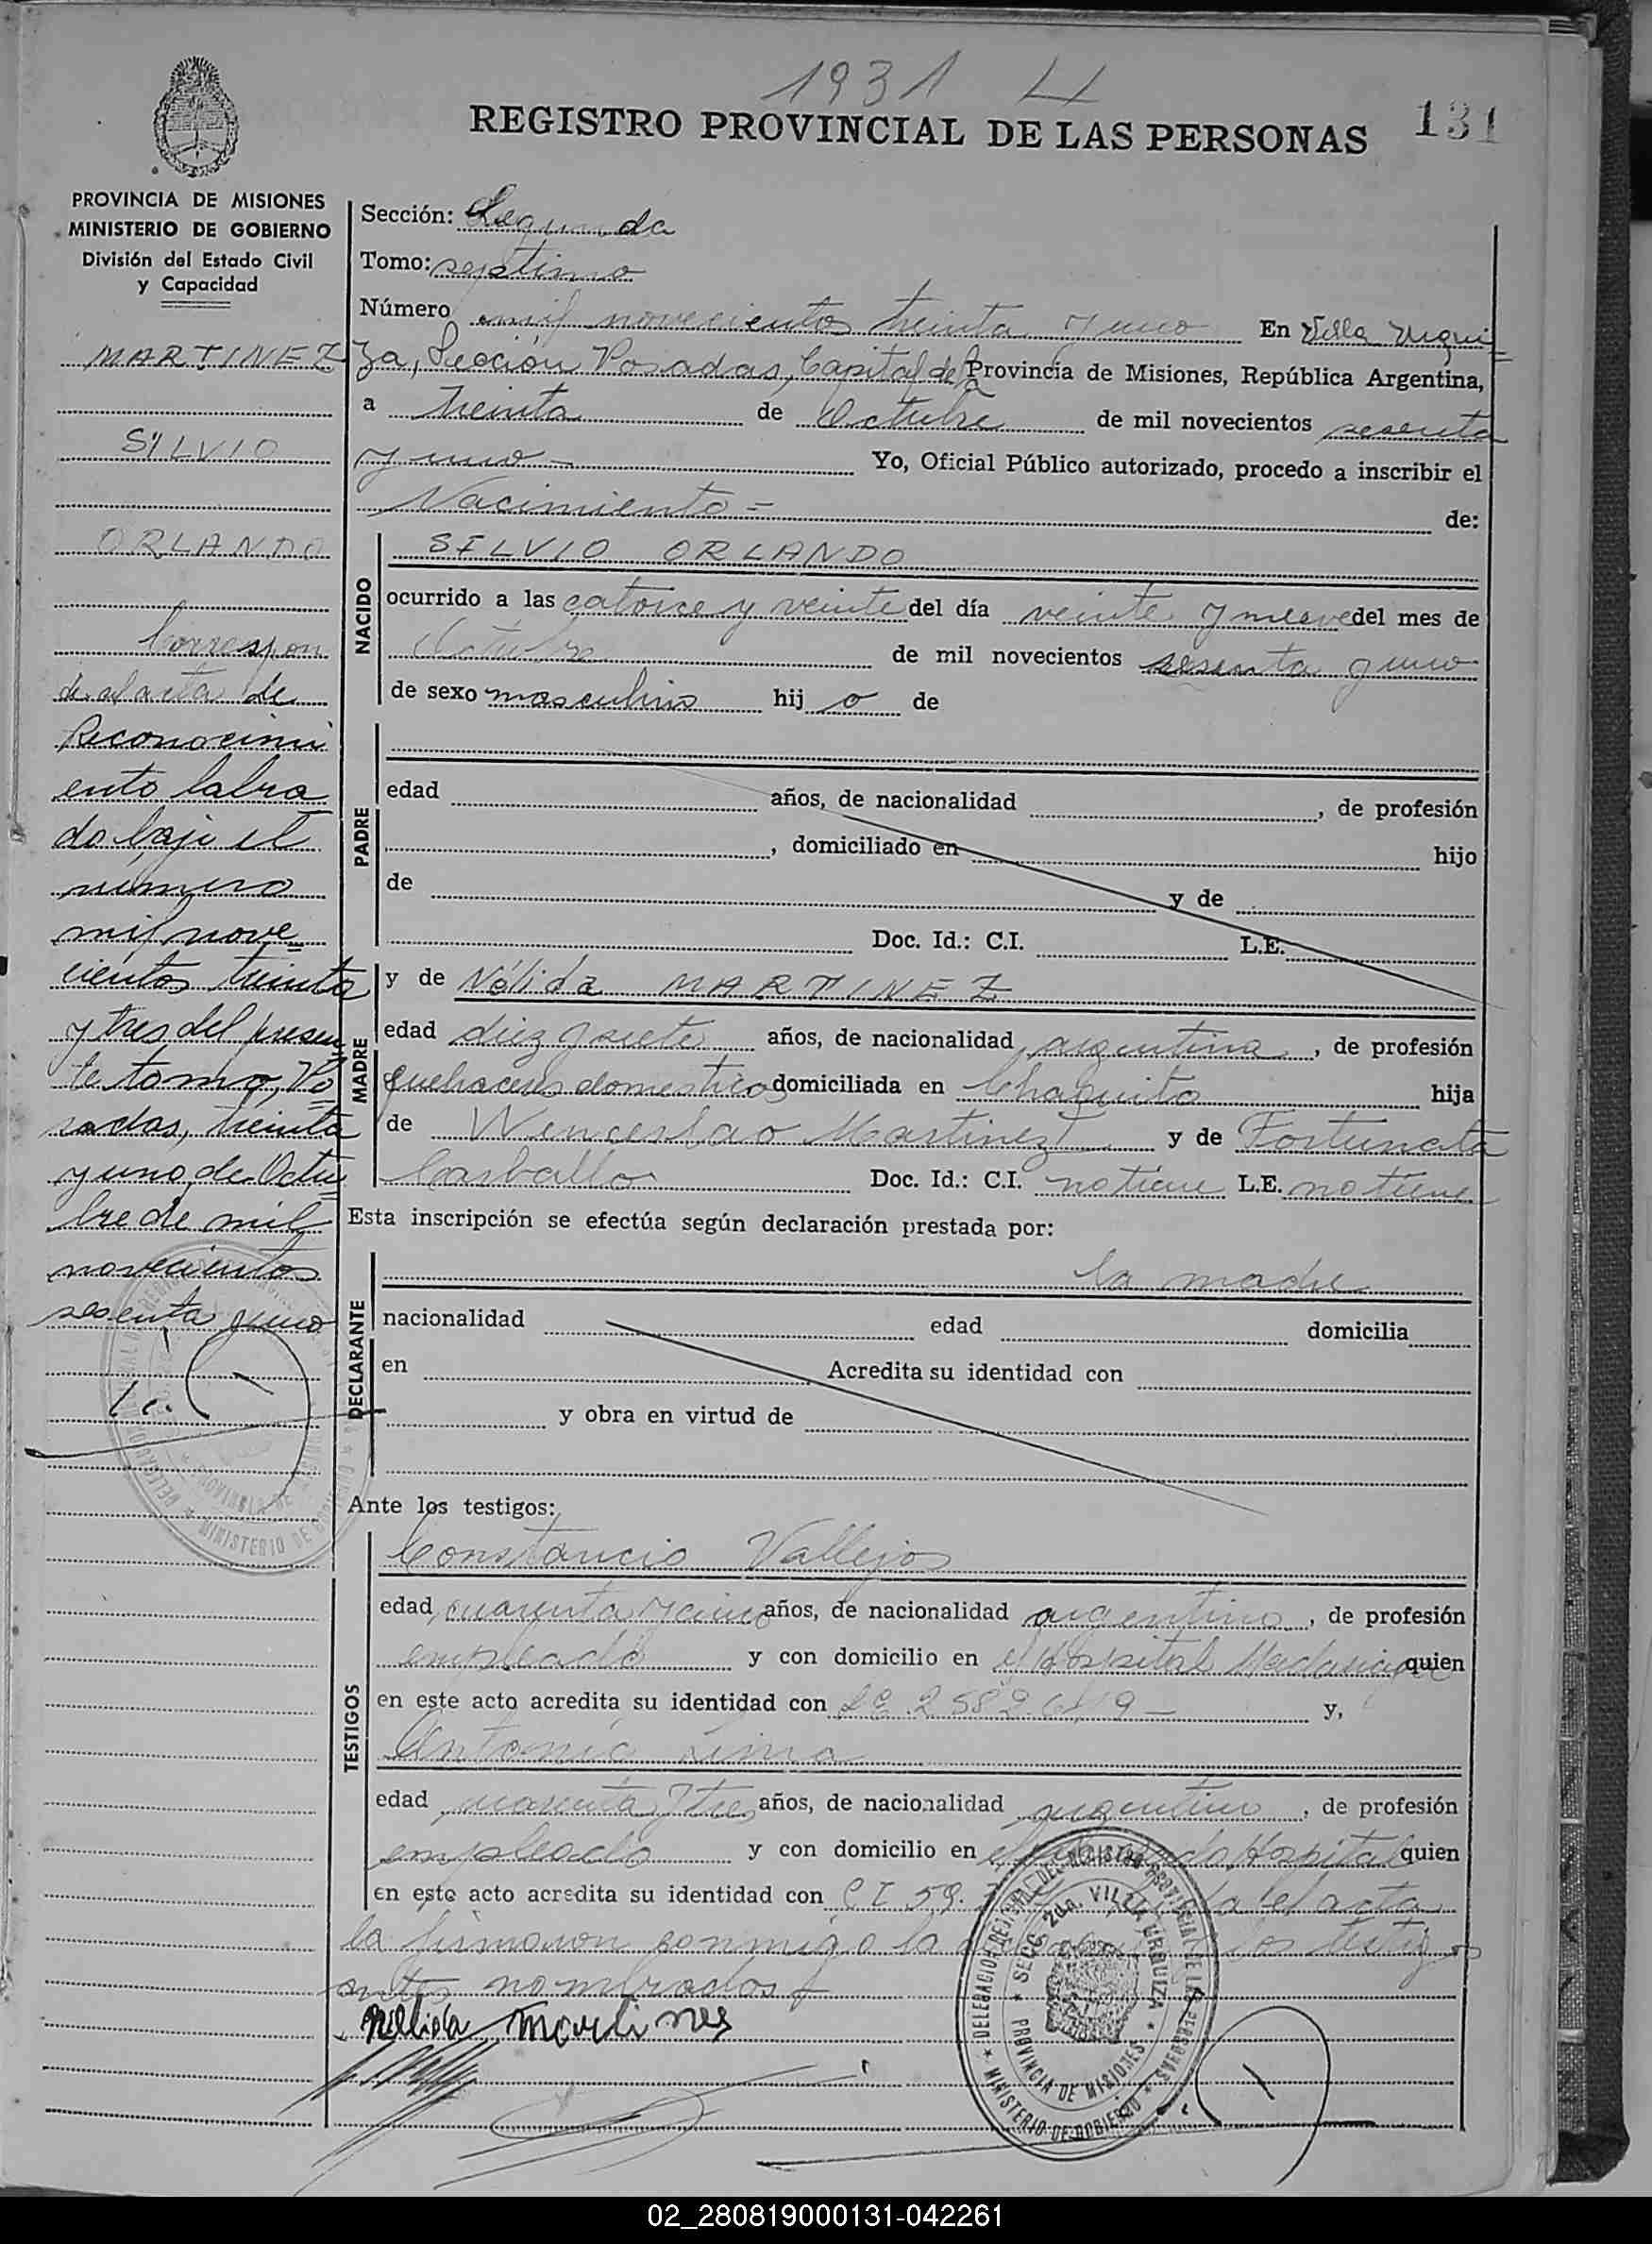 1931
REGISTRO PROVINCIAL DE LAS PERSONAS
131
PROVINCIA DE MISIONES
MINISTERIO DE GOBIERNO
División del Estado Civil
y Capacidad
MARTINEZ
SILVIO
ORLANDO
Correspon
de al acta de
Reconocimi
ento labra
do bajo el
número
mil nove
cientos treinta
y tres del presen
te tomo, Po
sadas, treinta
y uno de Octu
bre de mil
novecientos
sesenta y uno
Sección: Segunda
Tomo: septimo
Número mil novecientos treinta y uno En Villa Urqui
za, Sección Posadas, Capital de la Provincia de Misiones, República Argentina,
a treinta de Octubre de mil novecientos sesenta
y uno Yo, Oficial Público autorizado, procedo a inscribir el
Nacimiento = de:
NACIDO
SILVIO ORLANDO
ocurrido a las catorce y veinte del día veinte y nueve del mes de
Octubre de mil novecientos sesenta y uno
de sexo masculino hijo de
PADRE
edad años, de nacionalidad , de profesión
, domiciliado en hijo
de y de
Doc. Id.: C.I. L.E.
MADRE
y de Nélida MARTINEZ
edad diez y siete años, de nacionalidad argentina, de profesión
quehaceres domesticos domiciliada en Chaquito hija
de Wenceslao Martinez y de Fortunata
Carballo Doc. Id.: C.I. no tiene L.E. no tiene
Esta inscripción se efectúa según declaración prestada por:
DECLARANTE
la madre
nacionalidad edad domicilia
en Acredita su identidad con
y obra en virtud de
Ante los testigos:
TESTIGOS
Constancio Vallejos
edad cuarenta y cinco años, de nacionalidad argentino, de profesión
empleado y con domicilio en el Hospital Madariaga quien
en este acto acredita su identidad con y,
Antonio Lima
edad cuarenta y tres años, de nacionalidad argentino, de profesión
empleado y con domicilio en el Hospital quien
en este acto acredita su identidad con C I 59. el acta
la firmaron conmigo la los testigos
antes nombrados
Nellida Martines
DELEGACION DEL REGISTRO PROVINCIAL DE LAS PERSONAS
SECC. 2da. VILLA URQUIZA
PROVINCIA DE MISIONES
MINISTERIO DE GOBIERNO
02_280819000131-042261